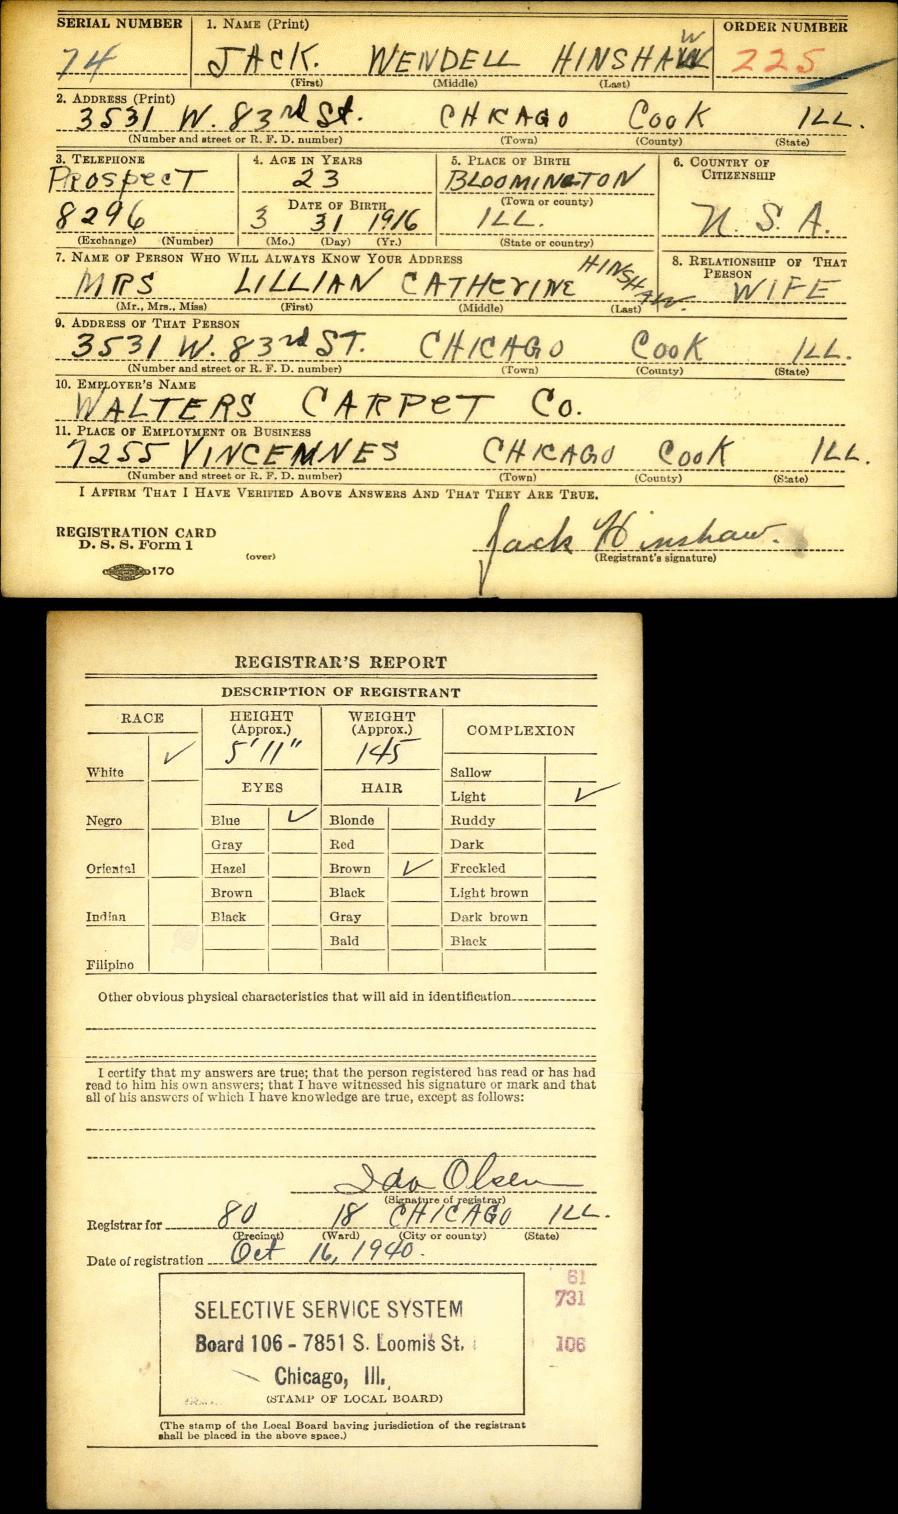 SERIAL NUMBER 1. NAME (Print) ORDER NUMBER
74 JACK. WENDELL HINSHAW W 225
(First) (Middle) (Last)
2. ADDRESS (Print)
3531 W. 83rd St. CHICAGO COOK ILL.
(Number and street or R. F. D. number) (Town) (County) (State)
3. TELEPHONE 4. AGE IN YEARS 5. PLACE OF BIRTH 6. COUNTRY OF CITIZENSHIP
PROSPECT 23 BLOOMINGTON
DATE OF BIRTH (Town or county)
8296 3 31 1916 ILL. U. S. A.
(Exchange) (Number) (Mo.) (Day) (Yr.) (State or country)
7. NAME OF PERSON WHO WILL ALWAYS KNOW YOUR ADDRESS 8. RELATIONSHIP OF THAT PERSON
MRS LILLIAN CATHERINE HINSHAW. WIFE
(Mr., Mrs., Miss) (First) (Middle) (Last)
9. ADDRESS OF THAT PERSON
3531 W. 83rd ST. CHICAGO COOK ILL.
(Number and street or R. F. D. number) (Town) (County) (State)
10. EMPLOYER'S NAME
WALTERS CARPET CO.
11. PLACE OF EMPLOYMENT OR BUSINESS
7255 VINCEMNES CHICAGO COOK ILL.
(Number and street or R. F. D. number) (Town) (County) (State)
I AFFIRM THAT I HAVE VERIFIED ABOVE ANSWERS AND THAT THEY ARE TRUE.
REGISTRATION CARD
D. S. S. Form 1
(over)
Jack Hinshaw.
(Registrant's signature)
170
REGISTRAR'S REPORT
DESCRIPTION OF REGISTRANT
RACE HEIGHT (Approx.) WEIGHT (Approx.) COMPLEXION
5'11" 145
White ✓ Sallow
EYES HAIR Light ✓
Negro Blue ✓ Blonde Ruddy
Gray Red Dark
Oriental Hazel Brown ✓ Freckled
Brown Black Light brown
Indian Black Gray Dark brown
Bald Black
Filipino
Other obvious physical characteristics that will aid in identification
I certify that my answers are true; that the person registered has read or has had
read to him his own answers; that I have witnessed his signature or mark and that
all of his answers of which I have knowledge are true, except as follows:
Ida Olsen
(Signature of registrar)
Registrar for 80 18 CHICAGO ILL.
(Precinct) (Ward) (City or county) (State)
Date of registration Oct 16, 1940.
SELECTIVE SERVICE SYSTEM
Board 106 - 7851 S. Loomis St.
Chicago, Ill.
(STAMP OF LOCAL BOARD)
61
731
106
(The stamp of the Local Board having jurisdiction of the registrant
shall be placed in the above space.)